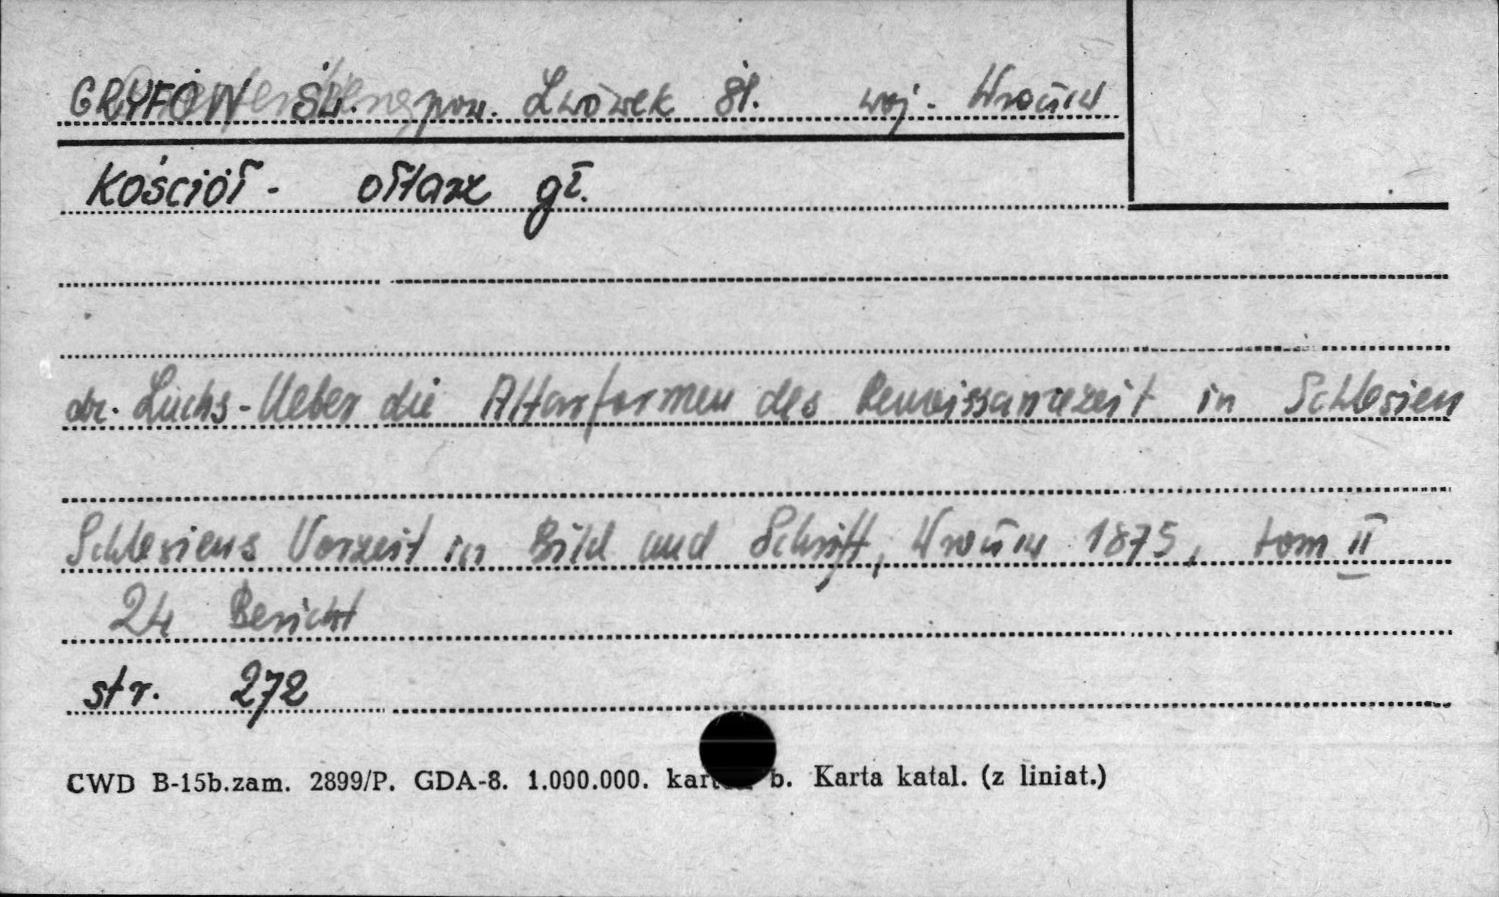 GRYFÓW ŚL. pow. Lwówek Śl. woj. Wrocław
Kościół - ołtarz gł.
dr. Luchs - Ueber die Altarformen des Renaissancezeit in Schlesien
Schlesiens Vorzeit in Bild und Schrift, Wrocław 1875, tom II
24 Bericht
str. 272
CWD B-15b.zam. 2899/P. GDA-8. 1.000.000. b. Karta katal. (z liniat.)